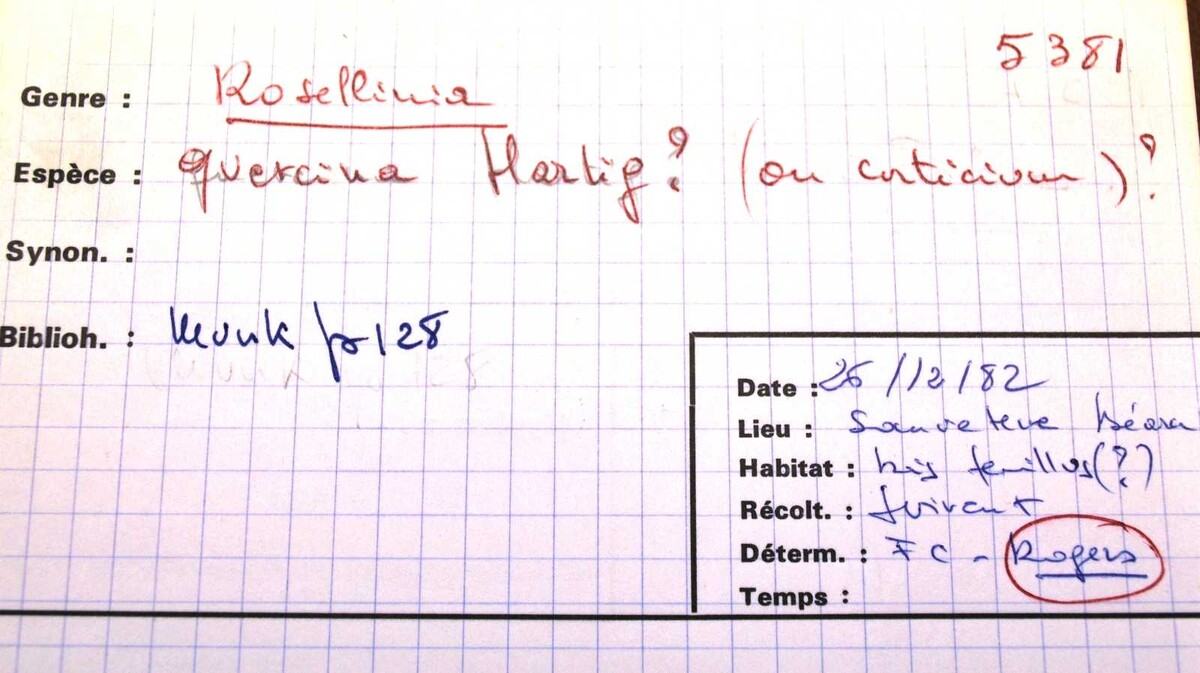 5381
Genre : Rosellinia
Espèce : quercina Hartig? (ou corticium)?
Synon. :
Biblioh. : Munk p 128
Date : 26/12/82
Lieu : Sauveterre Béarn
Habitat : bois feuillus(?)
Récolt. :
Déterm. : FC - Rogers
Temps :